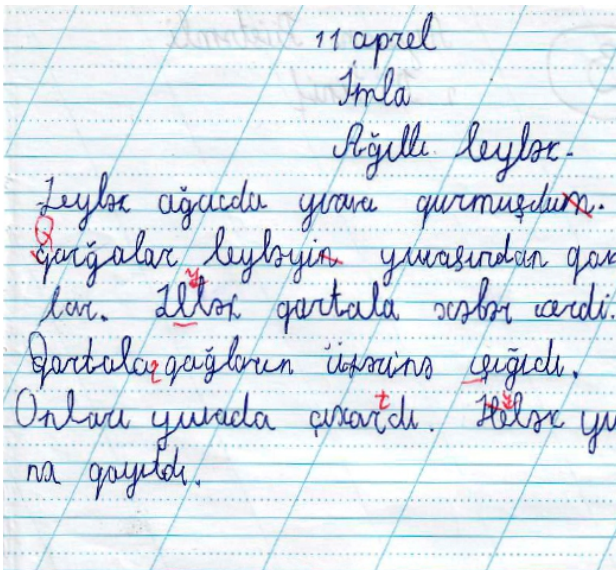 11 aprel
İmla
Ağıllı leylək.
Leylək ağacda yuva qurmuşdum.
Qarğalar leyləyin yuvasından qov
lar. qartala xəbər verdi.
Qartala qağların üzərinə çığıdı.
Onları yuvada çıxartdı. yu
nа qayıtdı.